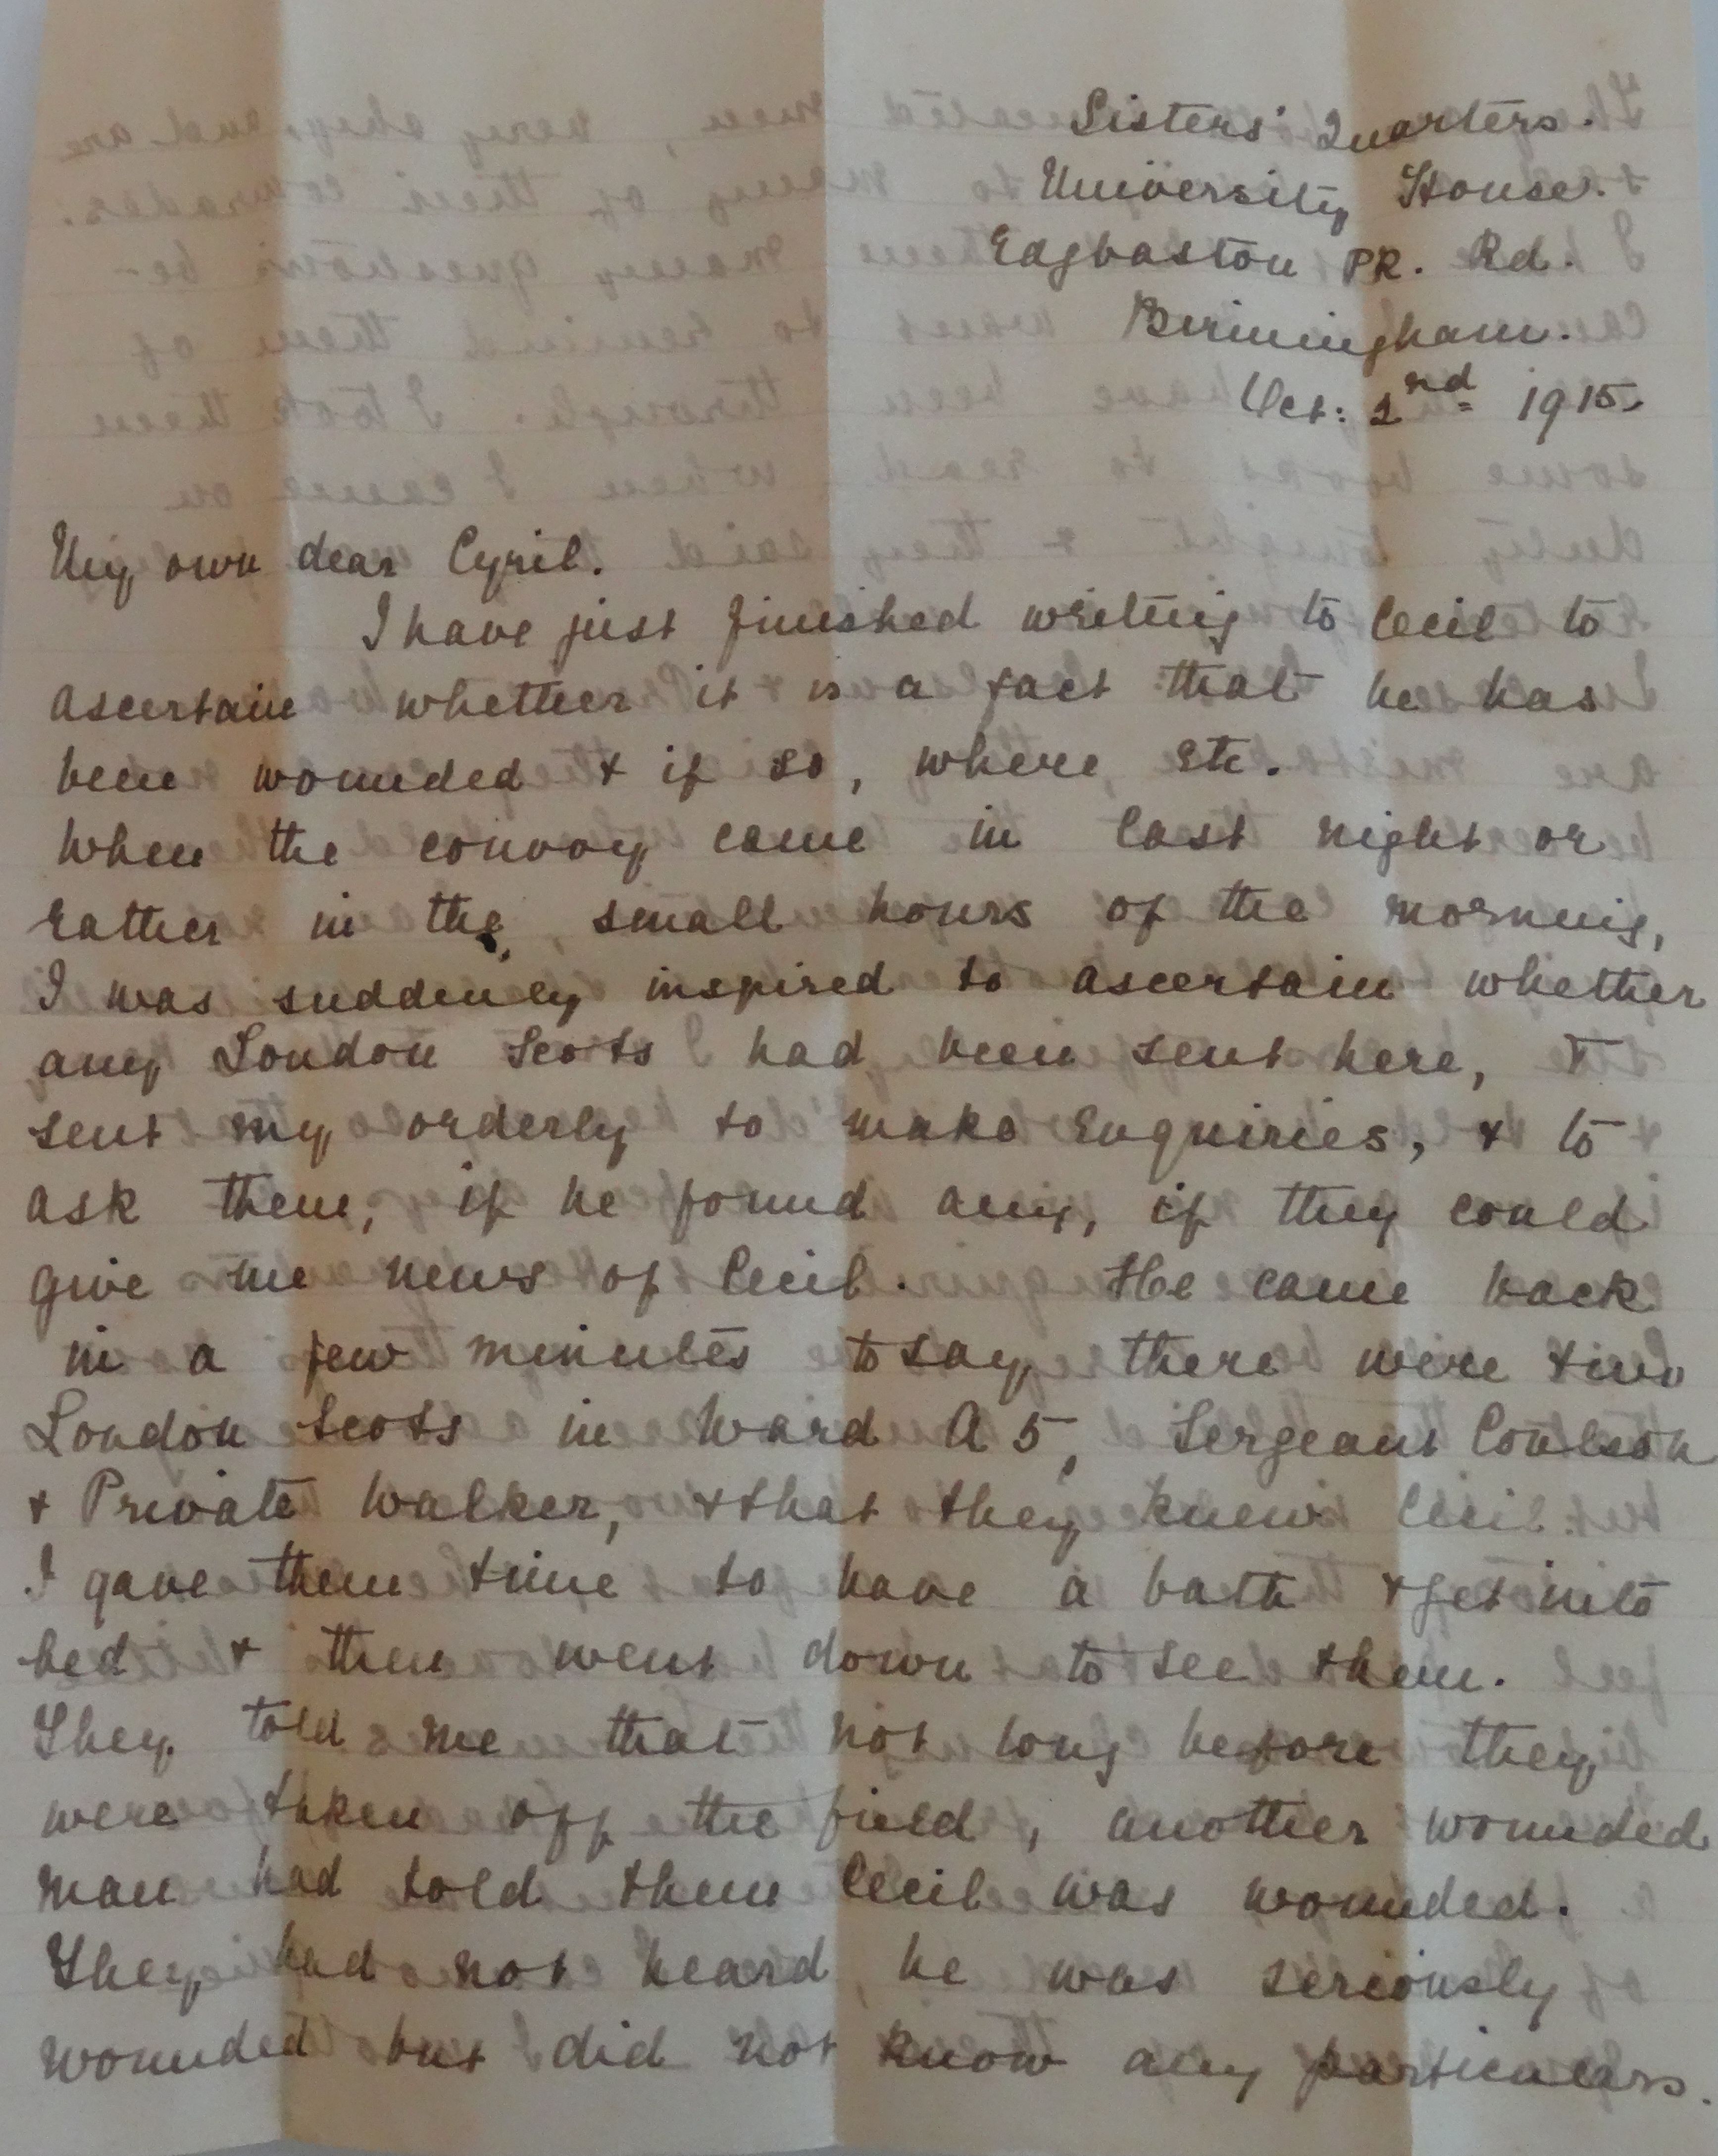 Sisters' Quarters.
University House.
Edgbaston PK. Rd.
Birmingham.
Oct: 2nd 1915.
My own dear Cyril.
I have just finished writing to Cecil to
ascertain whether it is a fact that he has
been wounded & if so, where, etc.
When the convoy came in last night or
rather in the, small hours of the morning,
I was suddenly inspired to ascertain whether
any London Scots had been sent here, &
sent my orderly to make enquiries, & to
ask them, if he found any, if they could
give me news of Cecil. He came back
in a few minutes to say there were two
London Scots in Ward A 5, Sergeant Coulson
& Private Walker, & that they knew Cecil.
I gave them time to have a bath & get into
bed & then went down to see them.
They told me that not long before they
were taken off the field, another wounded
man had told them Cecil was wounded.
They had not heard he was seriously
wounded but did not know any particulars.